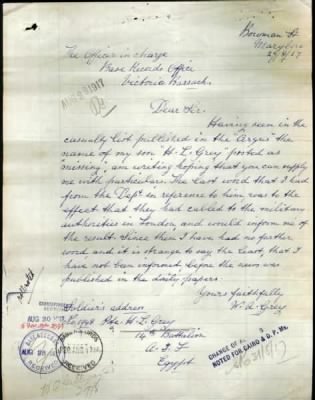 Bowman St
Maryboro
29/8/17
The Officer in charge
Base Records Office
Victoria Barracks
AUG 29 1917
Dear Sir.
Having seen in the
casualty list published in the "Argus" the
name of my son "H. L. Grey" posted as
"missing", am writing hoping that you can supply
me with particulars. The last word that I had
from the Dept in reference to him was to the
effect that they had cabled to the military
authorities in London, and would inform me of
the result. Since then I have had no further
word and it is strange to say the least, that I
have not been informed before the news was
published in the daily papers.
Yours faithfully
W. A. Grey
Soldier's address
Pte. H. L. Grey
14th Battalion
A. I. F
Egypt
AUG 30
CHANGE OF
NOTED FOR CAIRO & D. P. Ms.
31/8/17